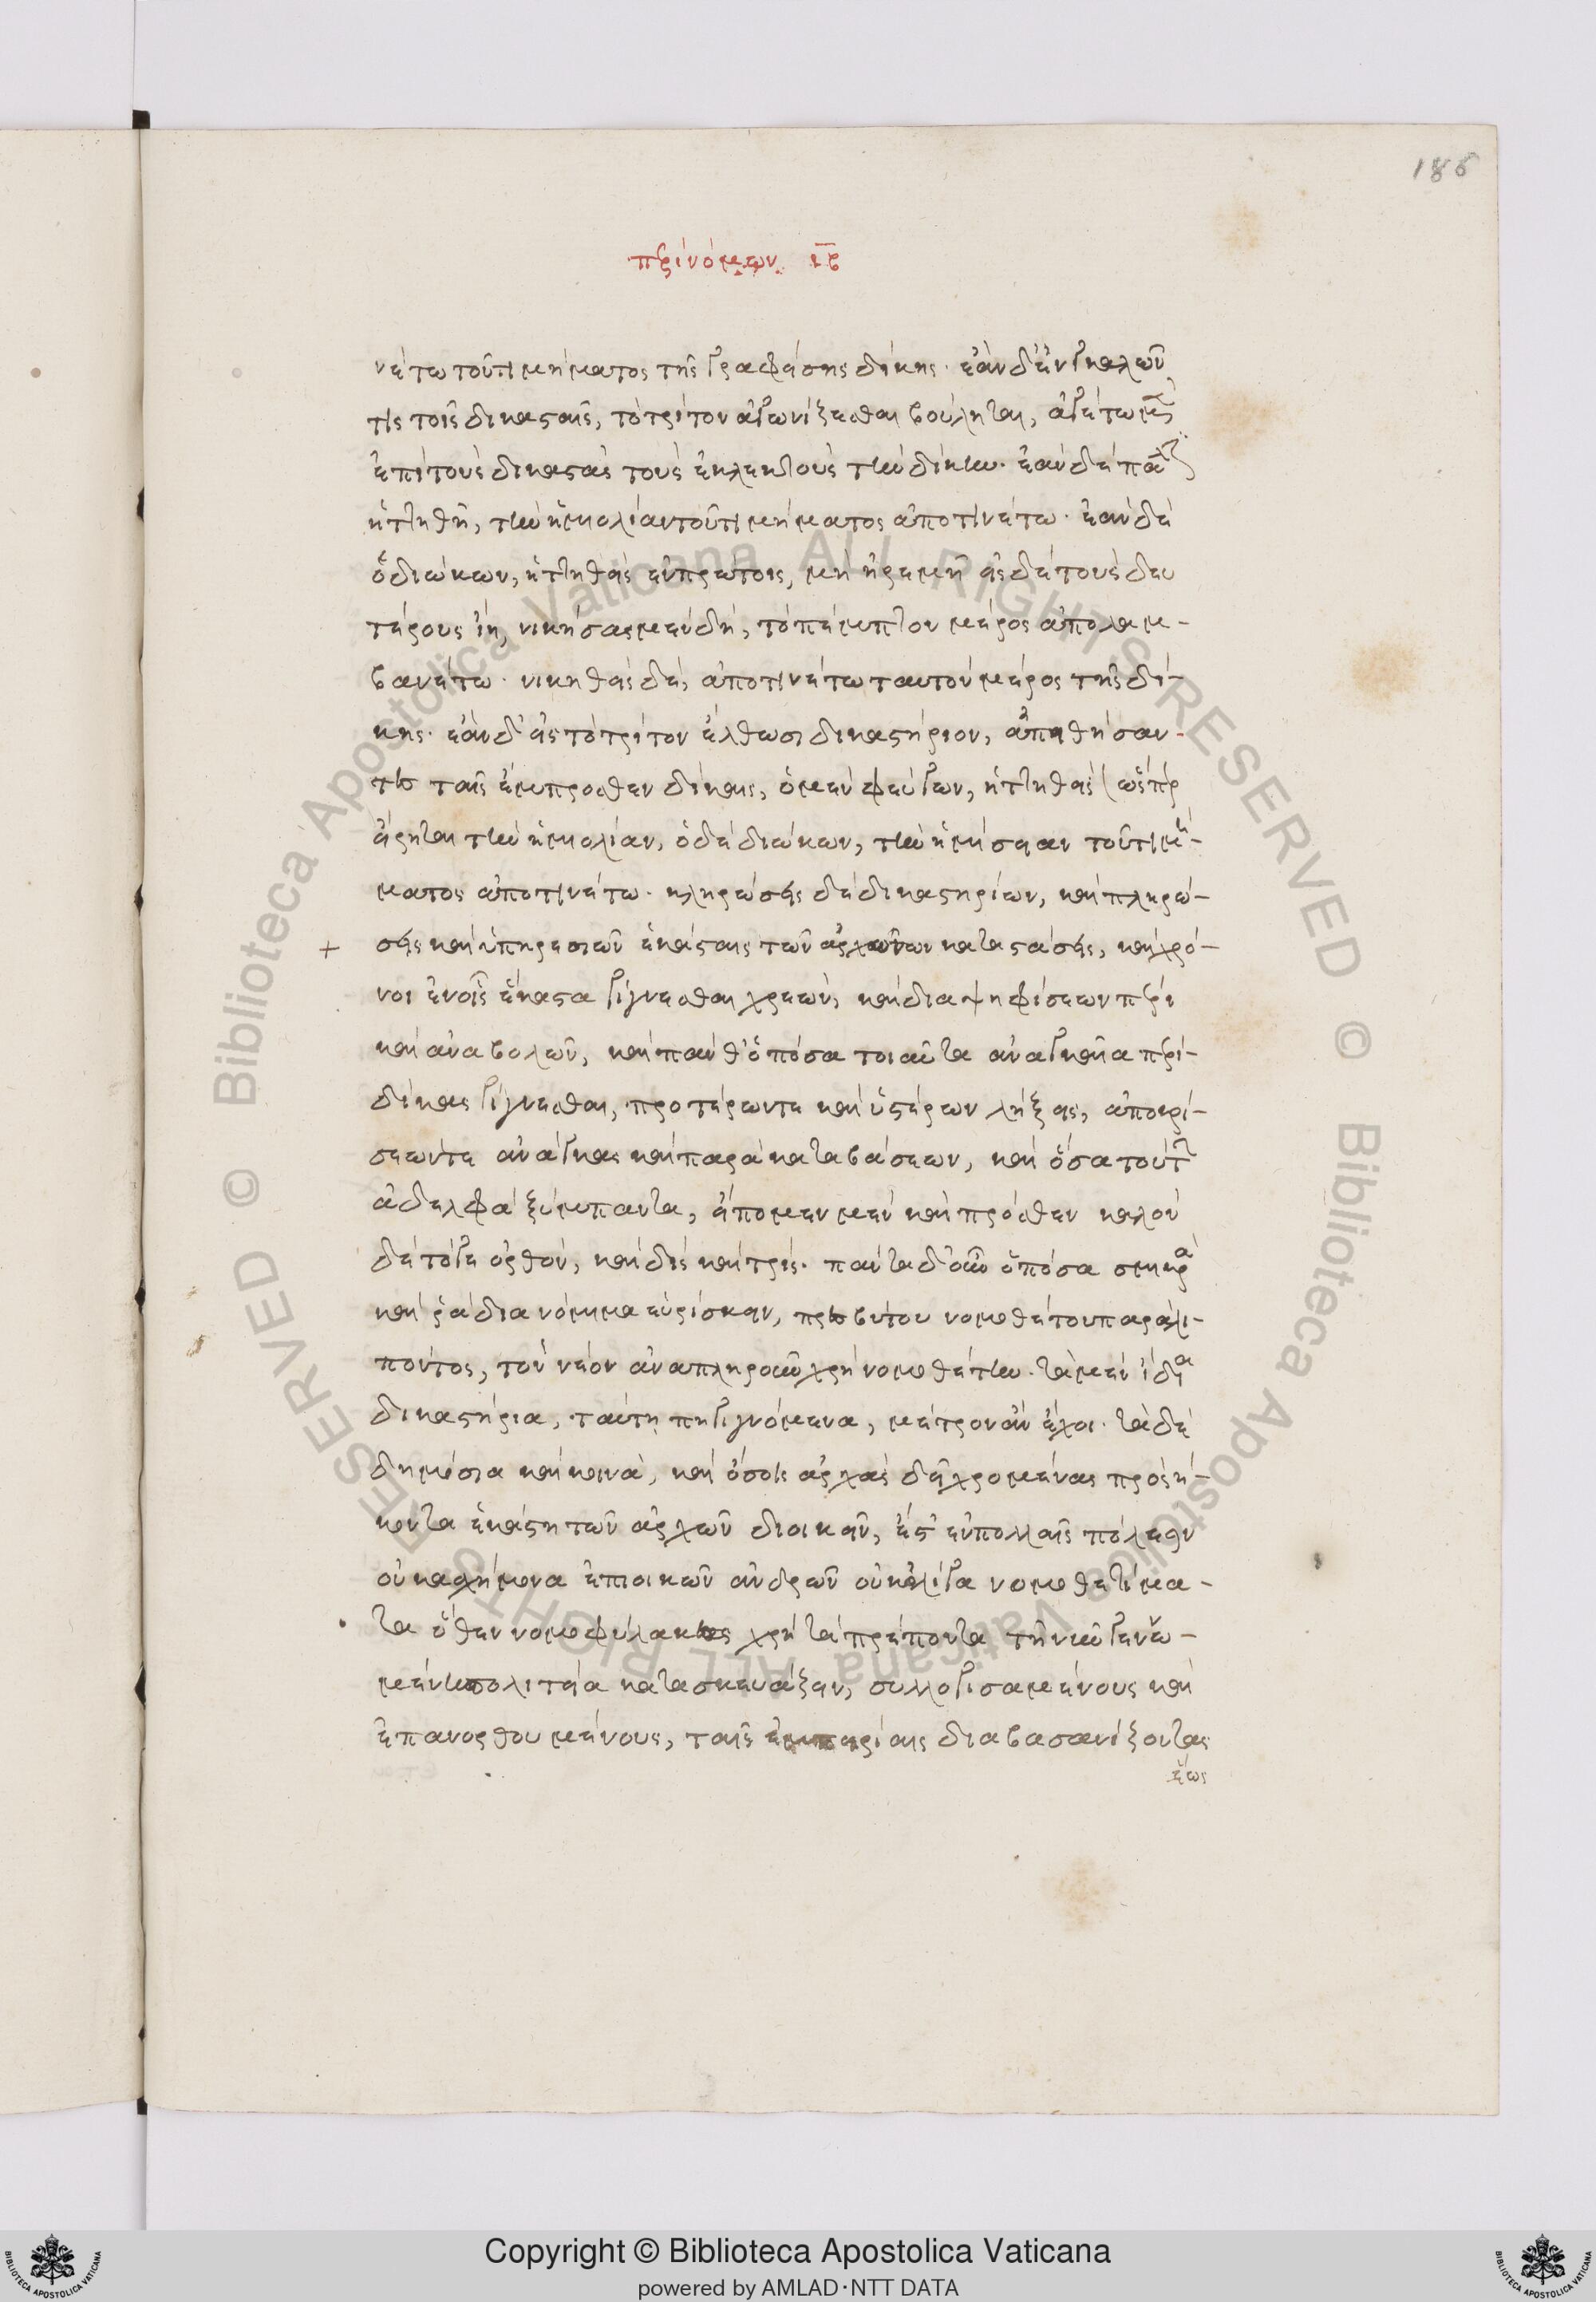 186
περὶ νόμων ιβ
νέτω τοῦ τιμήματος τῆς γραφείσης δίκης. ἐὰν δ' ἐνγκαλῶν
τις τοῖς δικασταῖς, τὸ τρίτον ἀγωνίζεσθαι βούληται, ἀγέτω μὲν
ἐπὶ τοὺς δικαστὰς τοὺς ἐκλεκτοὺς τὴν δίκην. ἐὰν δὲ πάλιν
ἡττηθῆ, τὴν ἡμιολίαν τοῦ τιμήματος ἀποτινέτω. ἐὰν δὲ
ὁ διώκων, ἡττηθεὶς ἐν πρώτοις, μὴ ἠρεμῆ εἰς δὲ τοὺς δευ
τέρους ἴῃ, νικήσας μὲν δὴ, τὸ πέμπτον μέρος ἀπολαμ-
βανέτω. νικηθεὶς δὲ, ἀποτινέτω ταυτὸν μέρος τῆς δί-
κης. ἐὰν δ' εἰς τὸ τρίτον ἔλθωσι δικαστήριον, ἀπειθήσαν-
τες ταῖς ἔμπροσθεν δίκαις, ὁ μὲν φεύγων, ἡττηθεὶς (ὥσπερ
εἴρηται τὴν ἡμιολίαν, ὁ δὲ διώκων, τὴν ἡμίσειαν τοῦ τιμή-
ματος ἀποτινέτω. κληρώσεις δὲ δικαστηρίων, καὶ πληρώ-
+ σεις καὶ ὑπηρεσιῶν ἑκάσταις τῶν ἀρχῶν καταστάσεις, καὶ χρό-
νοι ἐν οἷς ἕκαστα γίγνεσθαι χρεών, καὶ διαψηφίσεων πέρι
καὶ ἀναβολῶν, καὶ πάνθ' ὁπόσα τοιαῦτα ἀναγκαῖα περὶ-
δίκας γίγνεσθαι, προτέρων τε καὶ ὑστέρων λήξεις, ἀποκρί-
σεών τε ἀνάγκας καὶ παρὰ καταβάσεων, καὶ ὅσα τούτων
ἀδελφὰ ξύμπαντα, εἴπομεν μὲν καὶ πρόσθεν καλὸν
δὲ τό γε ὀρθόν, καὶ δὶς καὶ τρίς. πάντα δ' οὖν ὁπόσα σμικρὰ
καὶ ῥάδια νόμιμα εὑρίσκειν, πρεσβύτου νομοθέτου παραλι-
πόντος, τὸν νέον ἀναπληροῦν χρὴ νομοθέτην. τὰ μὲν ἴδια
δικαστήρια, ταύτῃ πη γιγνόμενα, μέτρον ἂν ἔχοι. τὰ δὲ
δημόσια καὶ κοινὰ, καὶ ὅσοις ἀρχὰς δεῖ χρομένας προσή-
κοντα ἑκάστη τῶν ἀρχῶν διοικεῖν, ἔστ' ἐν πολλαῖς πόλεσιν
οὐκ ἀσχήμονα ἐπιοικῶν ἀνδρῶν οὐκ ὀλίγα νομοθετήμα-
τα ὅθεν νομοφύλακας χρὴ τὰ πρέποντα τῆ νῦν γεννω-
μένη πολιτεία κατασκευάζειν, συλλογισαμένους καὶ
ἐπανορθουμένους, ταῖς ἐμπειρίαις διαβασανίζοντας
ἕως
Copyright © Biblioteca Apostolica Vaticana
powered by AMLAD·NTT DATA